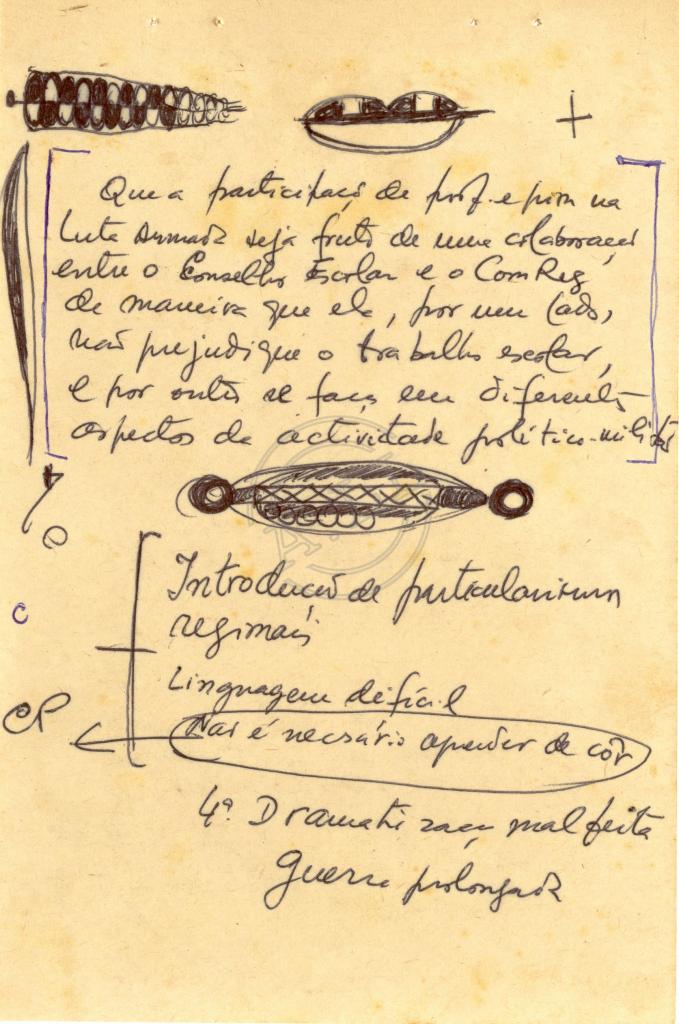 Que a participaçã de prof. e pion na
Luta Armada seja fruto de uma colaboraçã
entre o Conselho Escolar e o ComReg
de maneira que ela, por um lado,
não prejudique o trabalho escolar,
e por outro se faça em diferentes
aspectos da actividade político-militar
C
Introdução de particularismos
regionais
Linguagem difícil
CP
Não é necsário aprender de côr
4ª. Dramatizaçã mal feita
Guerra prolongada